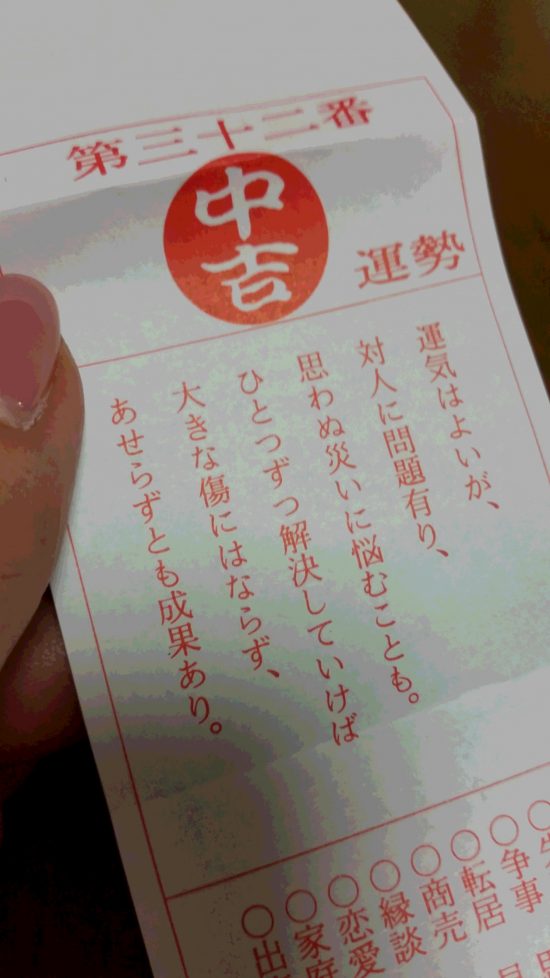 第三十二番
中吉
運勢
運気はよいが、
対人に問題有り、
思わぬ災いに悩むことも。
ひとつずつ解決していけば
大きな傷にはならず、
あせらずとも成果あり。
○争事
○転居
○商売
○縁談
○恋愛
○家庭
○出